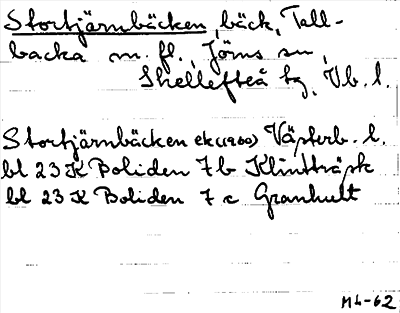 Stortjärnbäcken, bäck, Tall-
backa m. fl., Jörns sn,
Skellefteå kg, Vb. l.
Stortjärnbäcken ek (1960) Västerb. l.
bl 23 K Boliden 7 b Klintträsk
bl 23 K Boliden 7 c Granhult
ML-62